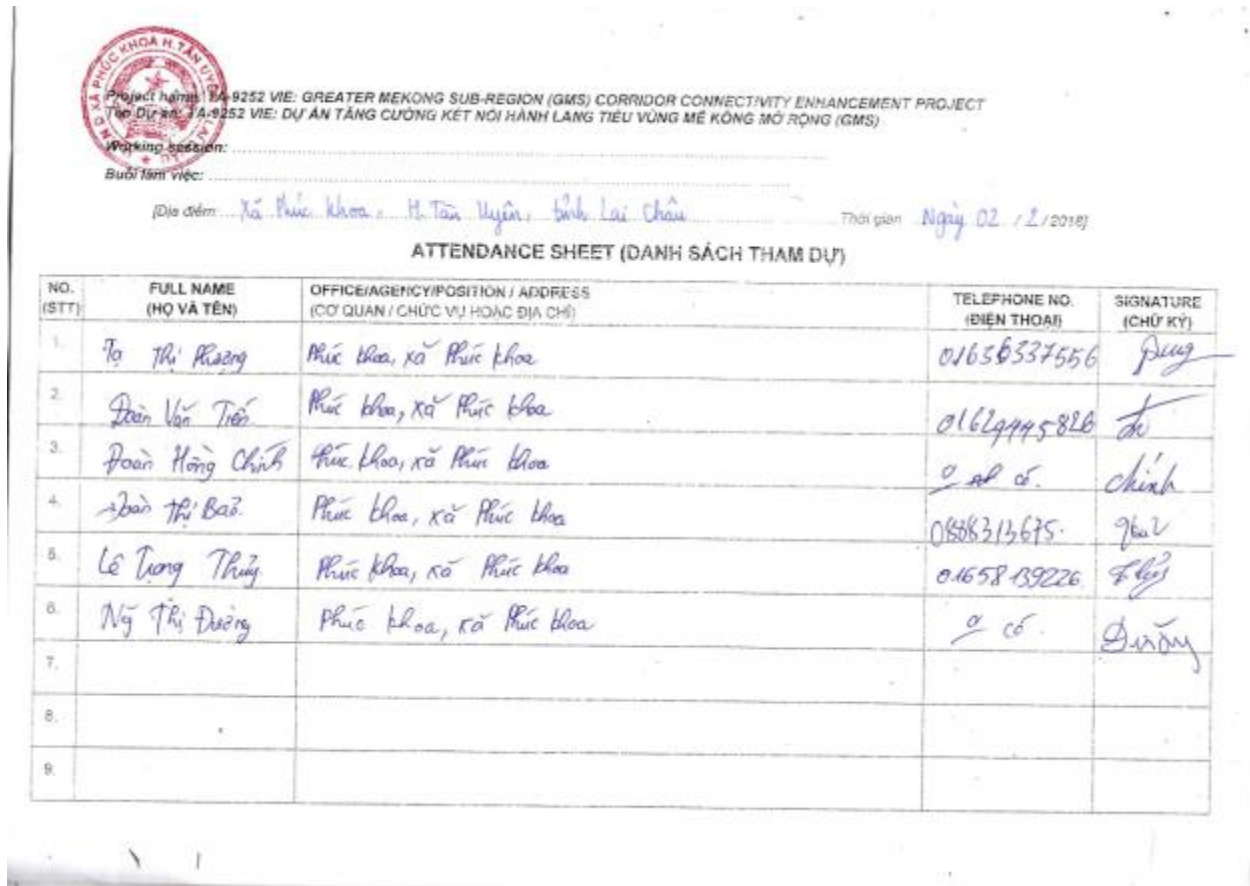 XÃ PHÚC KHOA H. TÂN UYÊN
Project name: TA-9252 VIE: GREATER MEKONG SUB-REGION (GMS) CORRIDOR CONNECTIVITY ENHANCEMENT PROJECT
Tên Dự án: TA-9252 VIE: DỰ ÁN TĂNG CƯỜNG KẾT NỐI HÀNH LANG TIỂU VÙNG MÊ KÔNG MỞ RỘNG (GMS)
Working session:
Buổi làm việc:
[Địa điểm Xã Phúc Khoa, H. Tân Uyên, tỉnh Lai Châu Thời gian Ngày 02 / 2 / 2018]
ATTENDANCE SHEET (DANH SÁCH THAM DỰ)
NO. FULL NAME OFFICE/AGENCY/POSITION / ADDRESS TELEPHONE NO. SIGNATURE
(STT) (HỌ VÀ TÊN) (CƠ QUAN / CHỨC VỤ HOẶC ĐỊA CHỈ) (ĐIỆN THOẠI) (CHỮ KÝ)
1. Tạ Thị Phượng Phúc khoa, xã Phúc khoa
2. Đoàn Văn Tiến Phúc khoa, xã Phúc khoa
3. Đoàn Hồng Chinh Phúc khoa, xã Phúc khoa có. chinh
4. Đoàn Thị Phúc khoa, xã Phúc khoa
5. Lê Trọng Thủy Phúc khoa, xã Phúc khoa 01658139226 Thủy
6. Thị Đường Phúc khoa, xã Phúc khoa có. Đường
7.
8.
9.